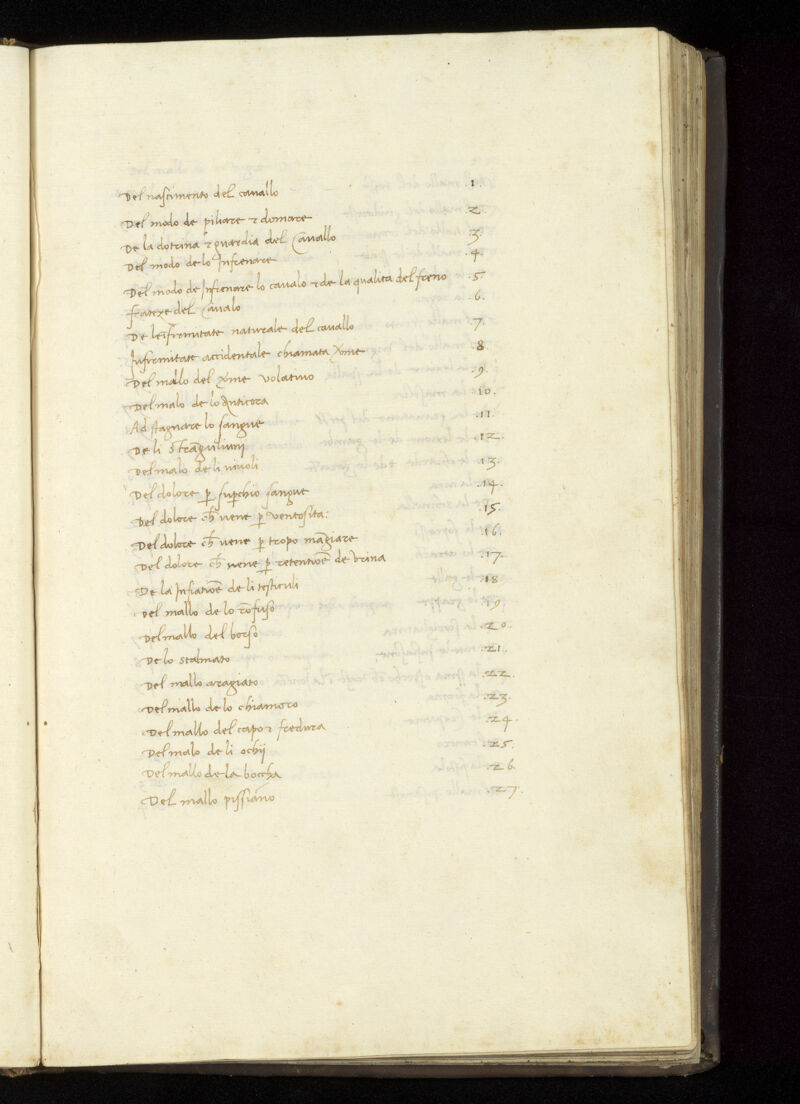 Del nascimento del cavallo .1.
Del modo de piliare & domare .2.
De la dotrina & guardia del Cavallo .3.
Del modo de lo Infrenare .4.
Del modo de Infrenare lo cavalo & de la qualita del freno .5.
fratexe del Cavalo .6.
De leīfirmitate naturale del cavallo .7.
Infirmitate accidentale chiamata verme .8.
Del mallo del verme volativo .9.
Del malo de lo Anticora .10.
Ad stagnare lo sangue .11.
De li Stranguliuni .12.
Del malo de li vivoli .13.
Del dolore p̱ sup̱chio sangue .14.
Del dolore ch̄ vene p̱ ventosita: .15.
Del dolore ch̄ vene p̱ tropo māgiare .16.
Del dolore ch̄ vene p̱ retentiōe de vrina .17.
De la Infiatiōe de li testiculi .18.
Del mallo de lo rōfuso .19.
Del mallo del borso .20.
De lo stalmato .21.
Del mallo aragiato .22.
Del mallo de lo chiamoro .23.
Del mallo del capo & fredura .24.
Del malo de li ochii .25.
Del mallo de la boccha .26
Del mallo pissiano .27.